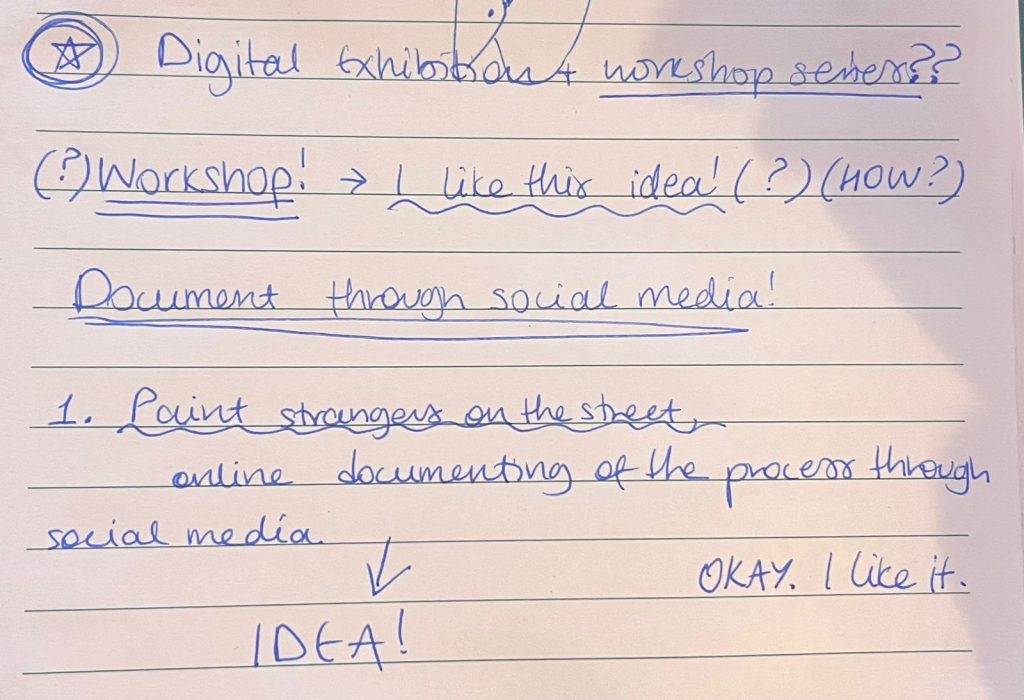 Digital Exhibition + workshop series??
(?) Workshop! → I like this idea! (?) (HOW?)
Document through social media!
1. Paint strangers on the street,
online documenting of the process through
social media.
OKAY. I like it.
IDEA!